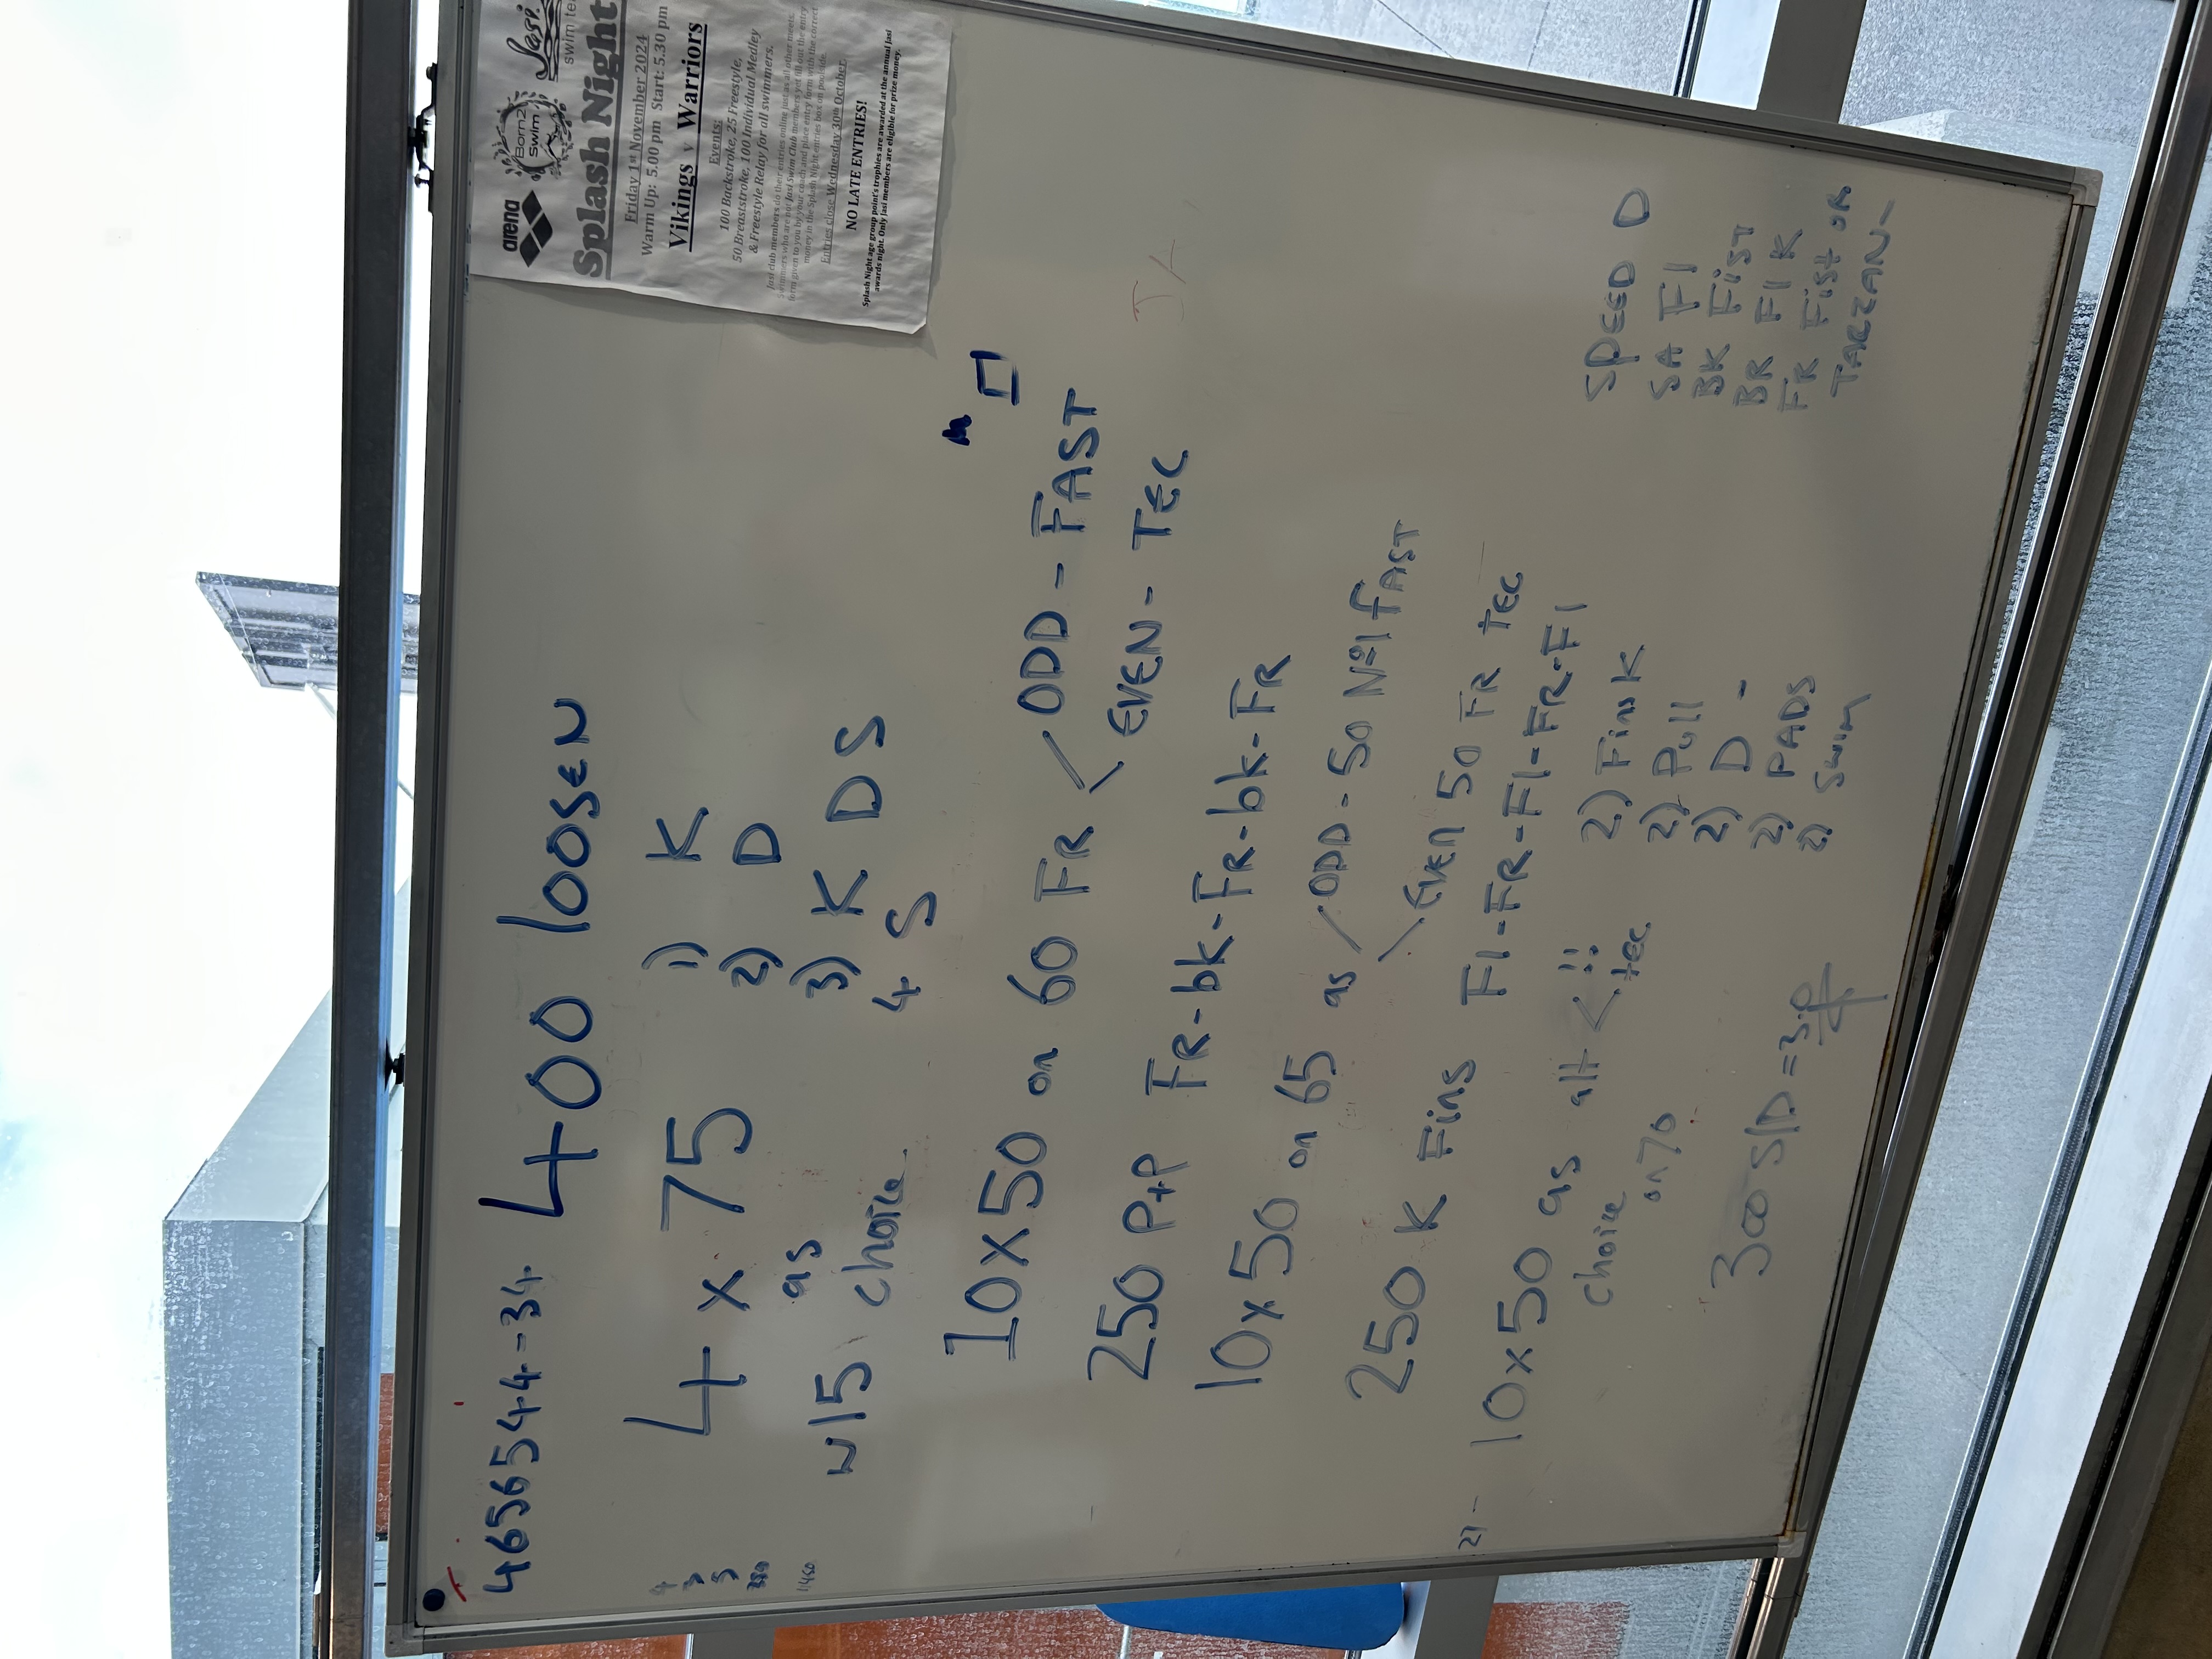 4656544-34 400 loosEN
4 x 75 1) K
as 2) D
w15 3) K DS
choice 4 S
10x50 on 60 FR < ODD - FAST
EVEN - TEC
250 P+P FR-bk-FR-bk-FR
10x50 on 65 as < ODD - 50 Nº1 FAST
EVEN 50 FR tec
250 K Fins Fl-FR-Fl-FR-Fl
10x50 as alt < !!
tec
choice
on 70
2) Fins K
2) Pull
2) D -
2) PADS
2) Swim
300 S/D =
SPEED D
SA Fl
BK Fist
BR Fl K
FR Fist or
TARZAN -
21 -
4
3
5
250
1450
arena
Born2
Swim
Jasi
swim tea
Splash Night
Friday 1st November 2024
Warm Up: 5.00 pm Start: 5.30 pm
Vikings v Warriors
Events:
100 Backstroke, 25 Freestyle,
50 Breaststroke, 100 Individual Medley
& Freestyle Relay for all swimmers.
Jasi club members do their entries online just as all other meets.
Swimmers who are not Jasi Swim Club members yet fill out the entry
form given to you by your coach and place entry form with the correct
money in the Splash Night entries box on poolside.
Entries close Wednesday 30th October
NO LATE ENTRIES!
Splash Night age group point's trophies are awarded at the annual Jasi
awards night. Only Jasi members are eligible for prize money.